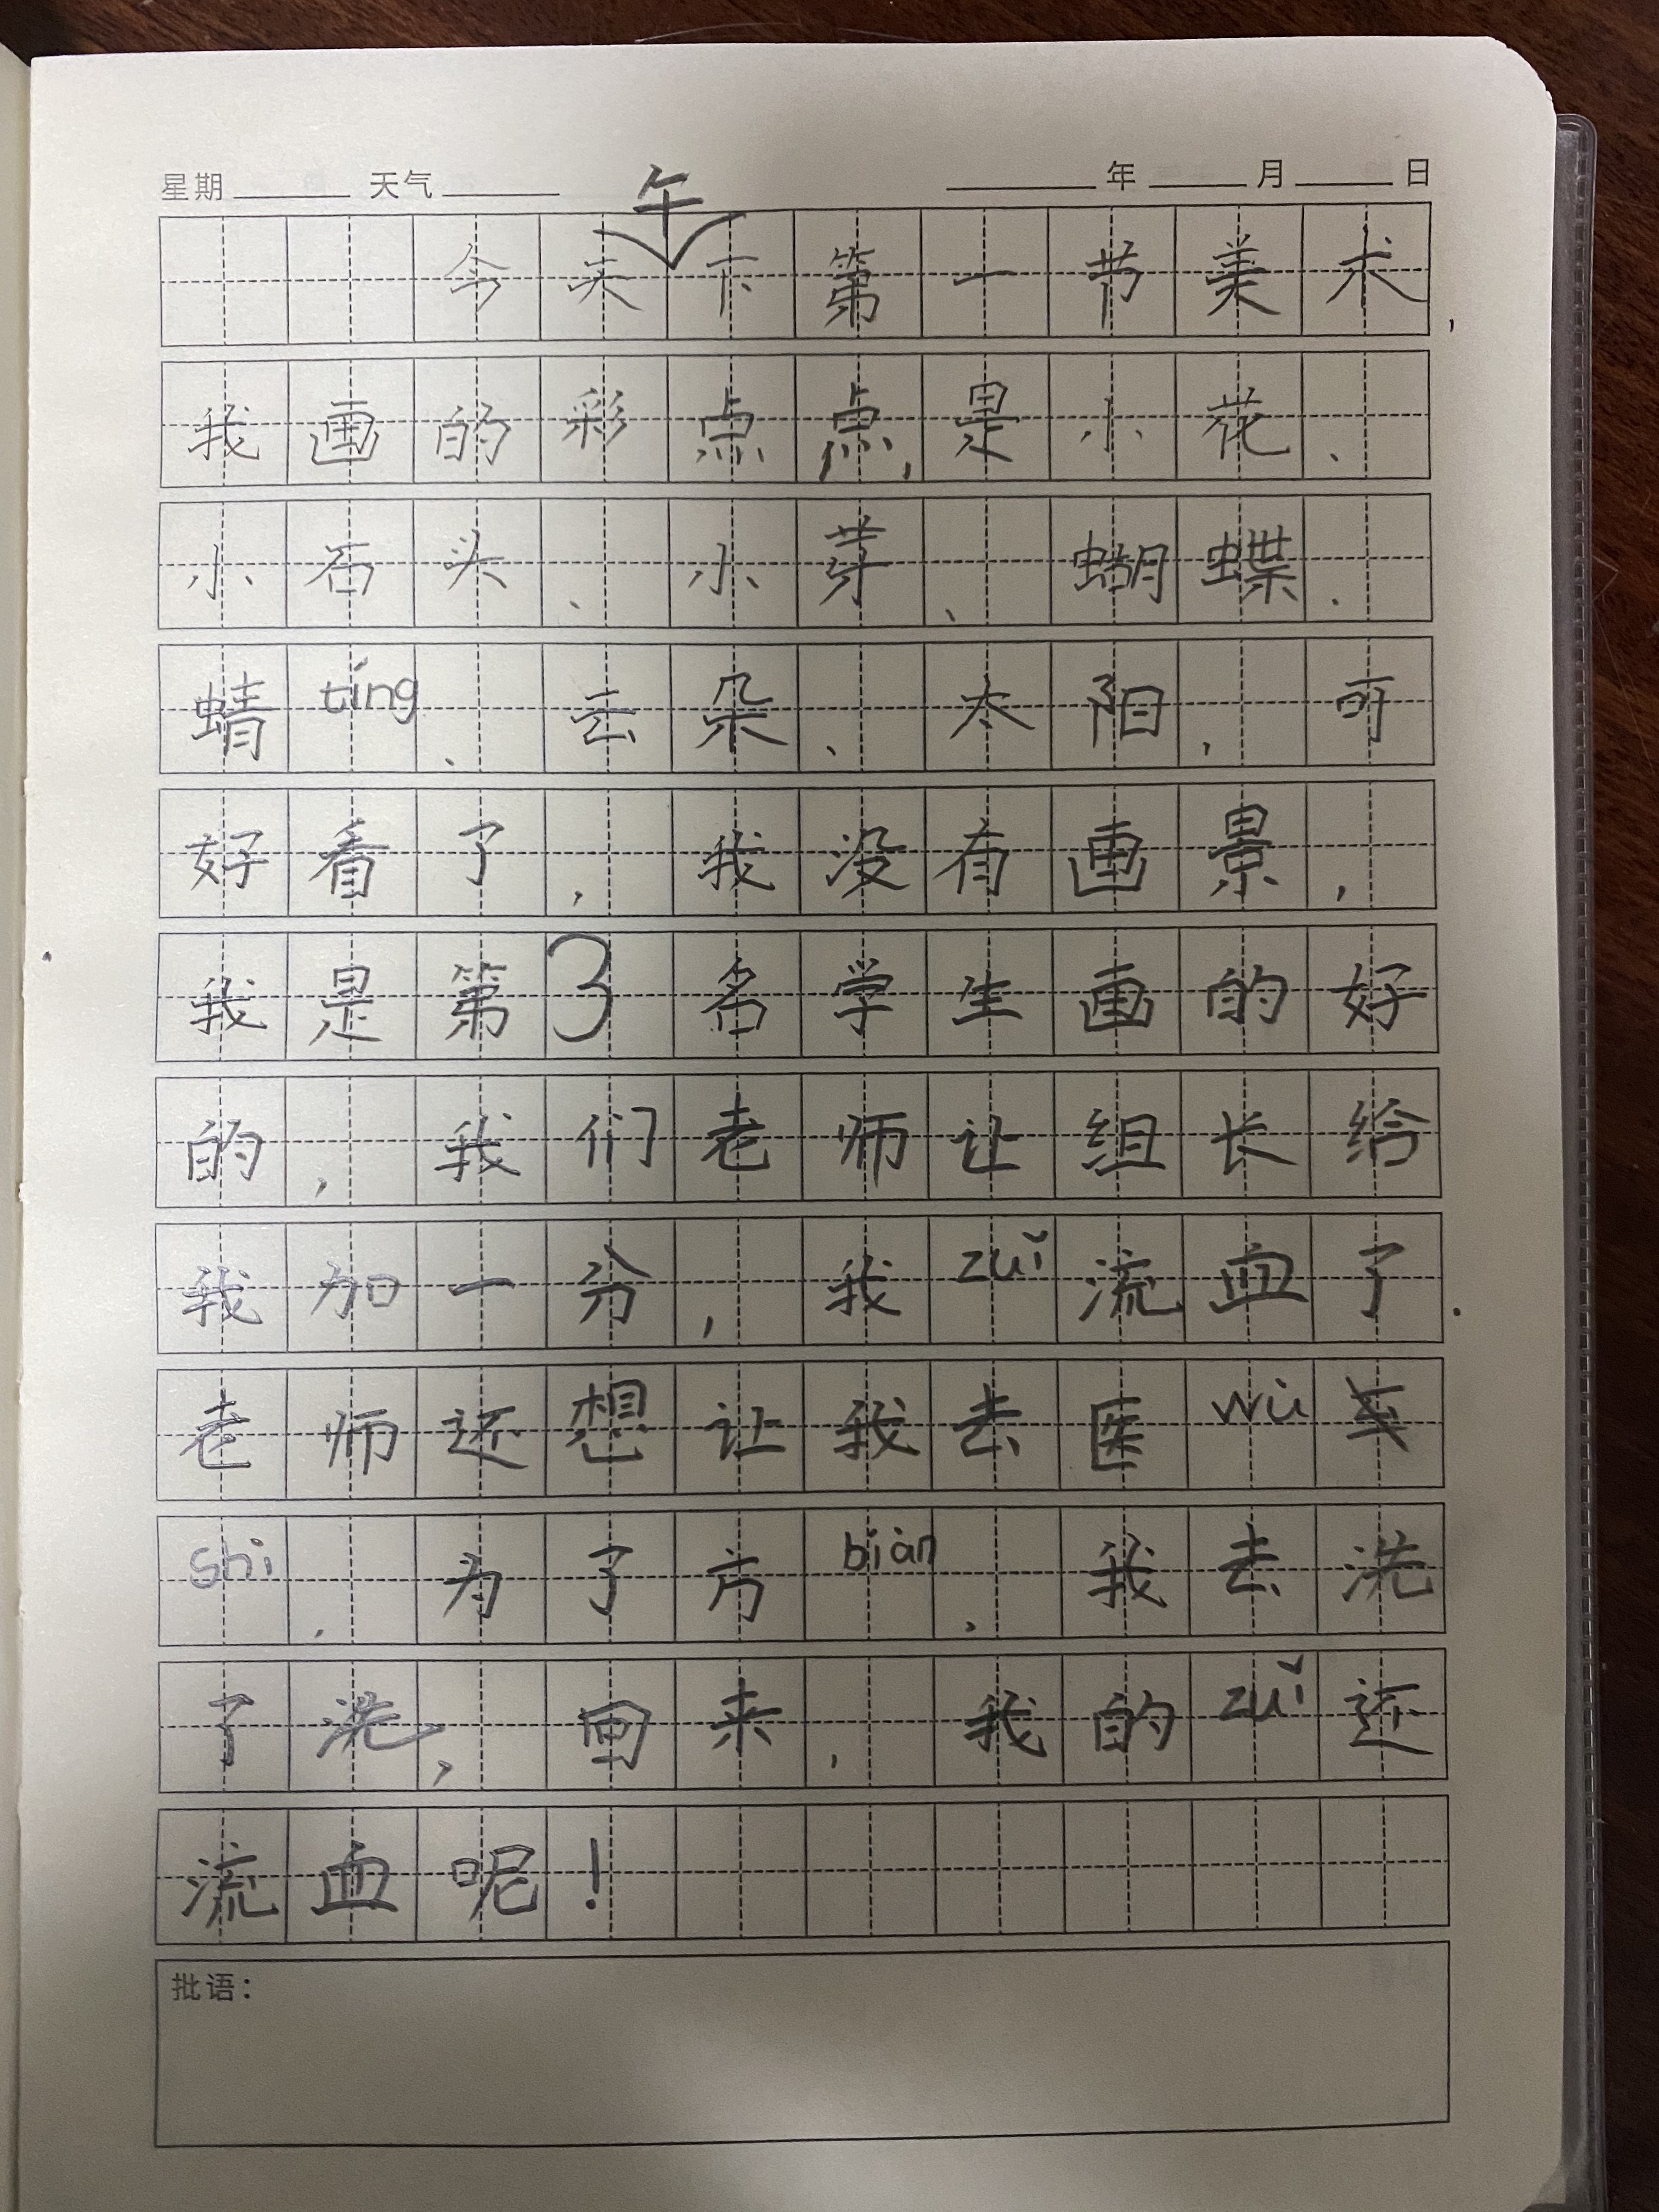 星期 天气 年 月 日
午
今天下第一节美术，
我画的彩点点，是小花、
小石头、小芽、蝴蝶、
蜻tíng、云朵、太阳，可
好看了，我没有画景，
我是第3名学生画的好
的，我们老师让组长给
我加一分，我zuǐ流血了.
老师还想让我去医wù
shì，为了方biàn，我去洗
了洗，回来，我的zuǐ还
流血呢！
批语：